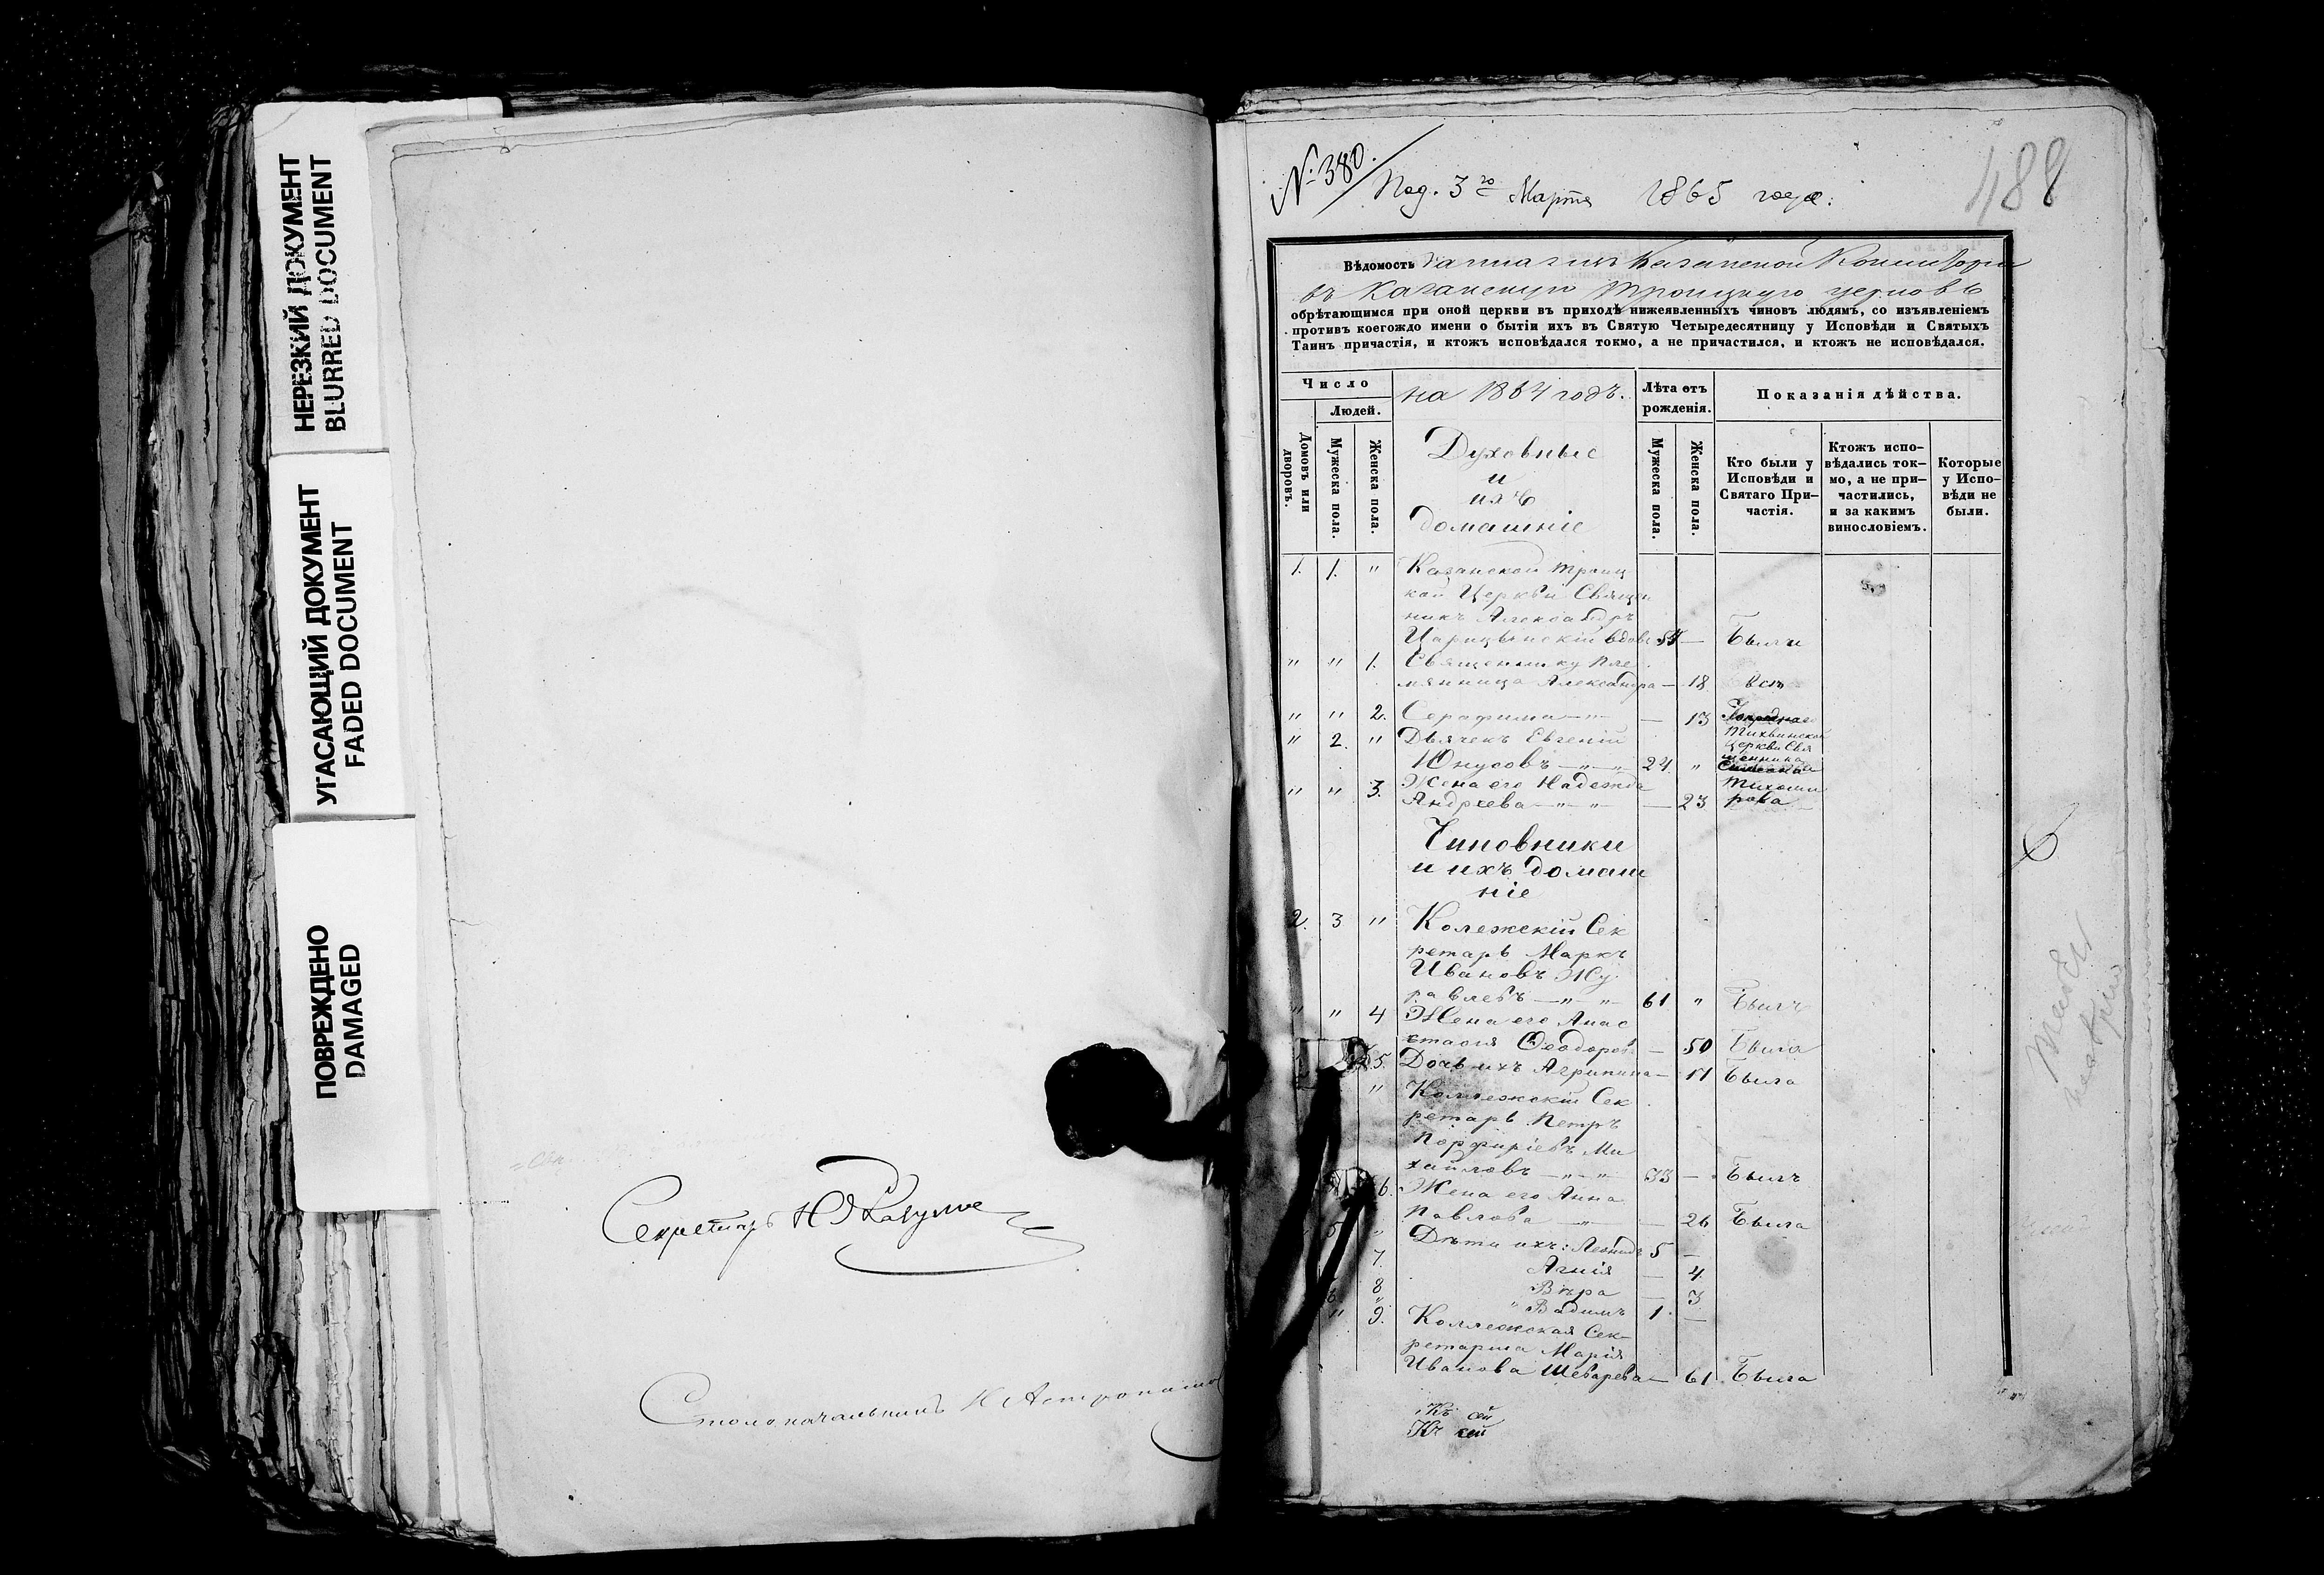 НЕРЕЗКИЙ ДОКУМЕНТ
BLURRED DOCUMENT
УГАСАЮЩИЙ ДОКУМЕНТ
FADED DOCUMENT
ПОВРЕЖДЕНО
DAMAGED
Секретарь
Столоначальникъ
№ 380.
Под. 3го Марта 1865 года.
488
Вѣдомость Казанской
въ Казанскую Троицкую церковь
обрѣтающимся при оной церкви въ приходѣ нижеявленныхъ чиновъ людямъ, со изъявленіемъ
противъ коегождо имени о бытіи ихъ въ Святую Четыредесятницу у Исповѣди и Святыхъ
Таинъ причастія, и ктожъ исповѣдался токмо, а не причастился, и ктожъ не исповѣдался.
Число
Людей.
Домовъ или дворовъ.
Мужеска пола.
Женска пола.
на 1864 годъ.
Духовные
и
ихъ
домашніе
Лѣта отъ
рожденія.
Мужеска пола.
Женска пола.
Показанія дѣйства.
Кто были у
Исповѣди и
Святаго При-
частія.
Ктожъ испо-
вѣдались ток-
мо, а не при-
частились,
и за какимъ
винословіемъ.
Которые
у Испо-
вѣди не
были.
1. 1. " Казанской Троиц
кой Церкви Священ
никъ Александръ
Царицынскій вдовъ 54 — Были
" " 1. Священнику пле
мянница Александра — 18 всѣ
" " 2. Серафима — " — — 13
Тихвинской
" 2. " Дьячекъ Евгеній церкви Свя
щенника
Юнусовъ — " — " 24 "
" " 3. Жена его Надежда Тихоми
Андреева — " — " — 23 рова
Чиновники
и ихъ домаш
ніе
2. 3 " Колежскій Сек
ретарь Маркъ
Ивановъ Жу
равлевъ — " — " — 61 " Былъ
" " 4 Жена его Анас
тасія Феодоров — 50 Была
5. Дочь ихъ Агрипина — 17 Была
" Коллежскій Сек
ретарь Петръ
Порфирьевъ Ми
хайловъ — " — " 33 — Былъ
6. Жена его Анна
Павлова — " — — 26 Была
5 " Дѣти ихъ: Леонидъ 5 —
7. Агнія — 4
8 Вѣра — 3
6. " " Вадимъ 1. —
" 9. Коллежская Сек-
ретарша Марія
Иванова Шебарева — 61 Была
Къ сей
Къ сей